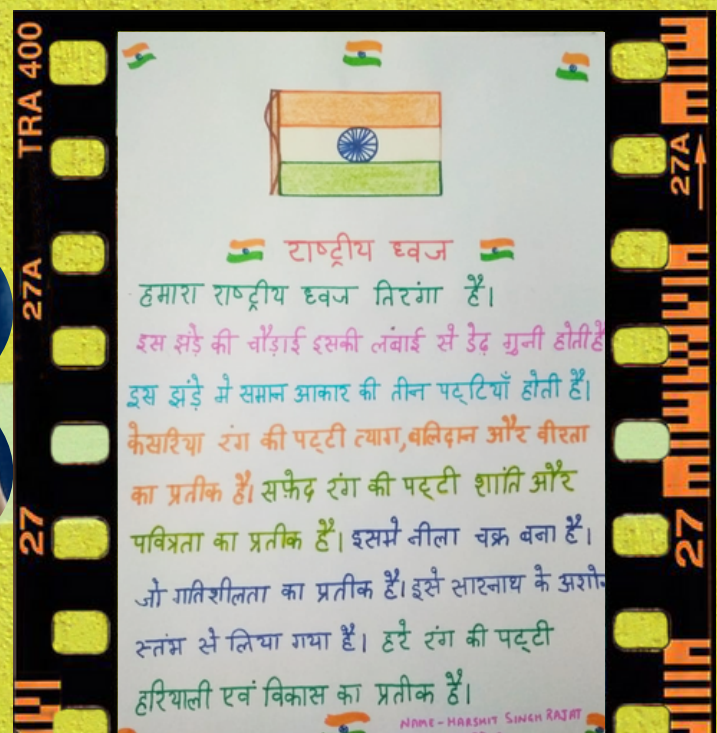 TRA 400
27A
27
27A
27
राष्ट्रीय ध्वज
हमारा राष्ट्रीय ध्वज तिरंगा है।
इस झंड़े की चौड़ाई इसकी लंबाई से डेढ़ गुनी होती है
इस झंड़े मे समान आकार की तीन पट्टियाँ होती है।
केसरिया रंग की पट्टी त्याग,बलिदान और वीरता
का प्रतीक है। सफ़ेद रंग की पट्टी शांति और
पवित्रता का प्रतीक है। इसमे नीला चक्र बना है।
जो गतिशीलता का प्रतीक है। इसे सारनाथ के
स्तंभ से लिया गया है। हरे रंग की पट्टी
हरियाली एवं विकास का प्रतीक है।
NAME-HARSHIT SINGH RAJAT